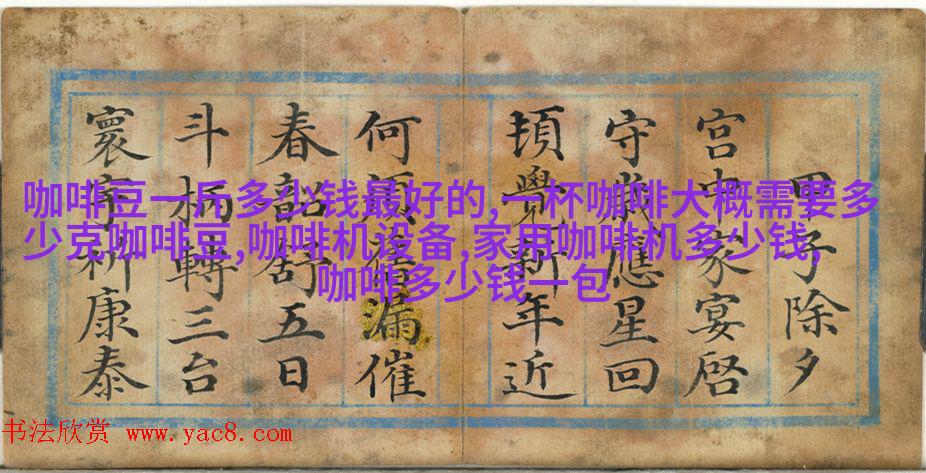 甲子除夕
宮中家宴啓
守歲應星回
頓覺新年近
何須漏催
春韶舒五日
斗柄轉三台
寰宇祈康泰
咖啡豆一斤多少钱最好的,一杯咖啡大概需要多
少克咖啡豆,咖啡机设备,家用咖啡机多少钱,
咖啡多少钱一包
书法欣赏 www.yac8.com